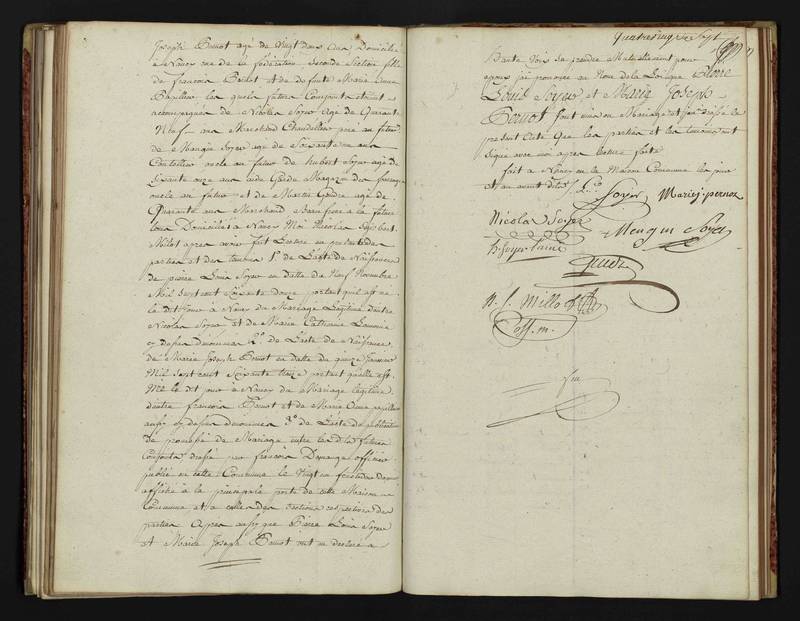 Joseph Pernot agé de vingt deux ans Domiciliée
à Nancy rue de la fédération, seconde Section fille
de francois Pernot et de defunte Marie Anne
Papillier, les quels futurs Conjoints etoient
accompagnés de Nicolas Soyer agé de quarante
Neuf ans Marchand Chandellier pere au futur
de Mengin Soyer agé de soixante ans
Coutellier oncle au futur de hubert Soyer agé de
soixante onze ans aide Garde Magazin des fourages
oncle au futur et de Martin agé de
Quarante ans Marchand Beau frere à la future
tous Domiciliés à Nancy Moi Nicolas
Millot apres avoir fait Lecture en presence des
parties et des temoins 1.º de L'acte de Naissance
de pierre Louis Soyer en datte du Neuf Novembre
Mil sept cent soixante douze portant qu'il est né
le dit jour à Nancy du Mariage Legitime d'entre
Nicolas Soyer et de Marie Catherine
cy dessus denommés 2.º de L'acte de Naissance
de Marie Joseph Pernot en datte du quinze Janvier
Mil sept cent soixante treize portant qu'elle est
Née le dit jour à Nancy du Mariage legitime
d'entre francois Pernot et de Marie Anne papillier
aussy cy dessus denommés 3.º de L'acte de publication
de promesse de Mariage entre les dits futurs
Conjoints dressé par francois Demange officier
public en cette Commune le vingt un
affiché à la principale porte de cette Maison
Commune et a celles des Sections respectives des
parties Apres aussy que Pierre Louis Soyer
et Marie Joseph Pernot ont eu declaré a
Quatrevingt sept
haute Voix se prendre Mutuellement pour
epoux j'ai prononcé au Nom de la Loi que Pierre
Louis Soyer et Marie Joseph
Pernot sont unis en Mariage et j'ai dressé le
present acte que les parties et les temoins ont
signé avec moi apres lecture faite
fait à Nancy en la Maison Commune les jour
et an avant dits L.s Soyer Mariej. pernot
Nicolas Soyer
Mengin Soyer
h. Soyer l'ainé
N. J. Millot
off. m.